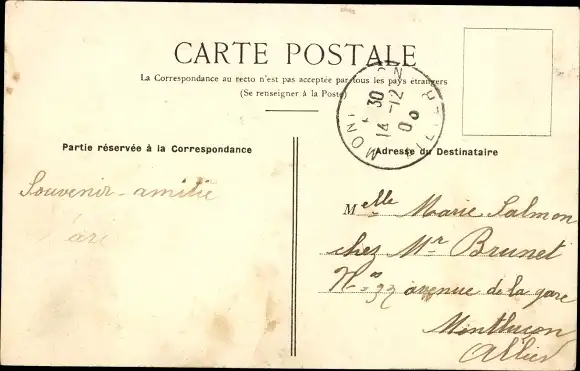 CARTE POSTALE
La Correspondance au recto n'est pas acceptée par tous les pays étrangers
(Se renseigner à la Poste)
Partie réservée à la Correspondance
Adresse du Destinataire
Souvenir-amitié
Melle Marie Salmon
chez Mr Brunet
No 37 avenue de la gare
Montluçon
Allier
30
14-12